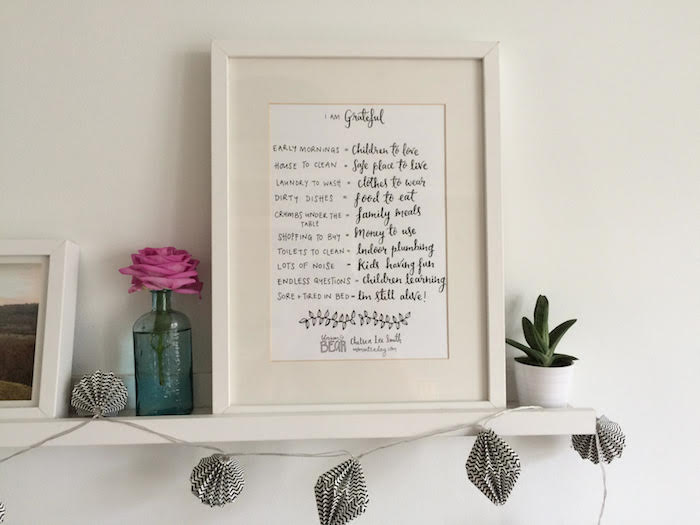 I AM Grateful
EARLY MORNINGS = Children to love
HOUSE TO CLEAN = Safe place to live
LAUNDRY TO WASH = clothes to wear
DIRTY DISHES = food to eat
CRUMBS UNDER THE TABLE = family meals
SHOPPING TO BUY = Money to use
TOILETS TO CLEAN - Indoor plumbing
LOTS OF NOISE - Kids having fun
ENDLESS QUESTIONS - children learning
SORE + TIRED IN BED - I'm still alive!
BEAR
Chelsea Lee Smith
momentsaday.com